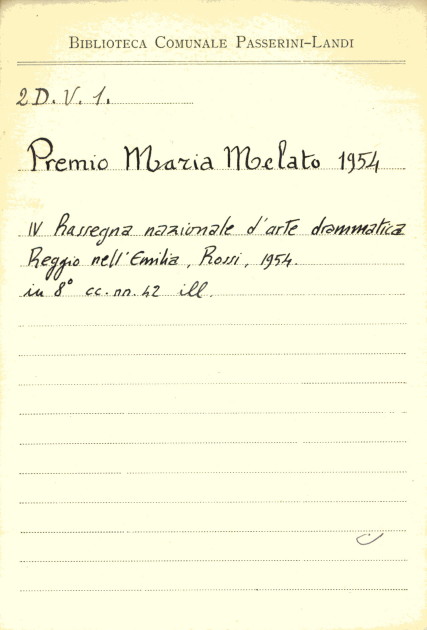 BIBLIOTECA COMUNALE PASSERINI-LANDI
2 D. V. 1.
Premio Maria Melato 1954
IV Rassegna nazionale d'arte drammatica
Reggio nell'Emilia, Rossi, 1954.
in 8° cc. nn. 42 ill.